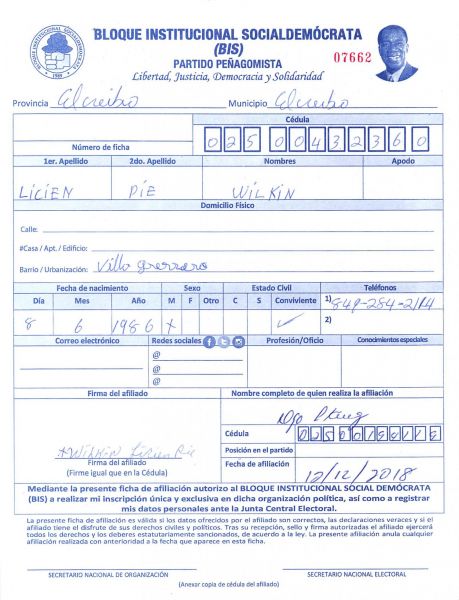 BLOQUE INSTITUCIONAL SOCIALDEMÓCRATA
(BIS)
PARTIDO PEÑAGOMISTA
07662
Libertad, Justicia, Democracia y Solidaridad
Provincia El ceibo Municipio El ceibo
Cédula
Número de ficha 025 0043236 0
1er. Apellido 2do. Apellido Nombres Apodo
LICIEN PIE WILKIN
Domicilio Físico
Calle:
#Casa / Apt. / Edificio:
Barrio / Urbanización: Villa guerrero
Fecha de nacimiento Sexo Estado Civil Teléfonos
Día Mes Año M F Otro C S Conviviente 1) 849-284-2114
8 6 1986 x ✓ 2)
Correo electrónico Redes sociales Profesión/Oficio Conocimientos especiales
@
@
@
Firma del afiliado Nombre completo de quien realiza la afiliación
Cédula
WILKIN Licien Pie
Posición en el partido
Firma del afiliado
(Firme igual que en la Cédula)
Fecha de afiliación 12/12/2018
Mediante la presente ficha de afiliación autorizo al BLOQUE INSTITUCIONAL SOCIAL DEMÓCRATA
(BIS) a realizar mi inscripción única y exclusiva en dicha organización política, así como a registrar
mis datos personales ante la Junta Central Electoral.
La presente ficha de afiliación es válida si los datos ofrecidos por el afiliado son correctos, las declaraciones veraces y si el
afiliado tiene el disfrute de sus derechos civiles y políticos. Tras su recepción, sello y firma autorizados el afiliado ejercerá
todos los derechos y los deberes estatutariamente sancionados, de acuerdo a la ley. La presente afiliación anula cualquier
afiliación realizada con anterioridad a la fecha que aparece en esta ficha.
SECRETARIO NACIONAL DE ORGANIZACIÓN SECRETARIO NACIONAL ELECTORAL
(Anexar copia de cédula del afiliado)